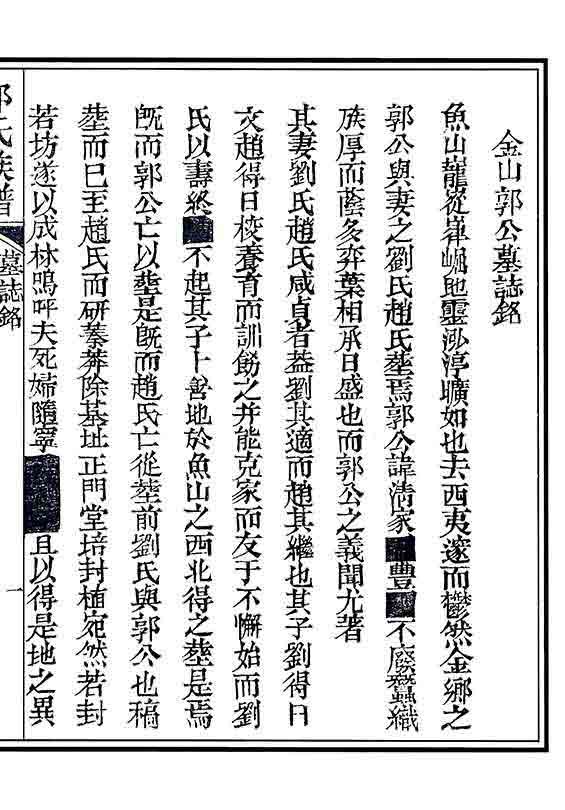 金山郭公墓誌銘
魚山巃嵸嵂崛地靈渺渟曠如也去西夷邃而鬱然金鄉之
郭公與妻之劉氏趙氏塟焉郭公諱清家豐不廢蠶織
族厚而蔭多弈葉相承日盛也而郭公之義聞尤著
其妻劉氏趙氏咸貞者葢劉其適而趙其繼也其子劉得曰
文趙得曰校養育而訓飭之并能克家而友于不懈始而劉
氏以壽終不起其子卜善地於魚山之西北得之塟是焉
旣而郭公亡以塟是旣而趙氏亡從塟前劉氏與郭公也稿
塟而已至趙氏而研蓁莽除基址正門堂培封植宛然若封
若坊遂以成林嗚呼夫死婦隨寧且以得是地之異
郭氏族譜
墓誌銘
一